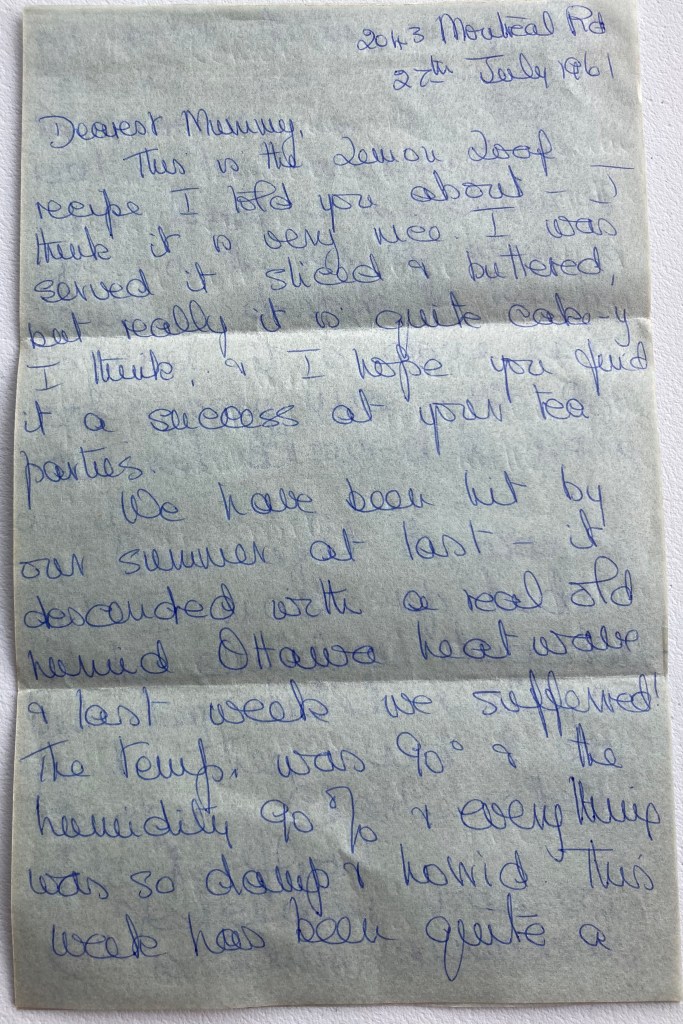 2043 Montreal Rd
27th July 1961
Dearest Mummy,
This is the Lemon Loaf
recipe I told you about - I
think it is very nice. I was
served it sliced & buttered,
but really it is quite cake-y
I think, & I hope you find
it a success at your tea
parties.
We have been hit by
our summer at last - it
descended with a real old
humid Ottawa heat wave
& last week we suffered!
The temp. was 90° & the
humidity 90% & everything
was so damp & horrid. This
week has been quite a